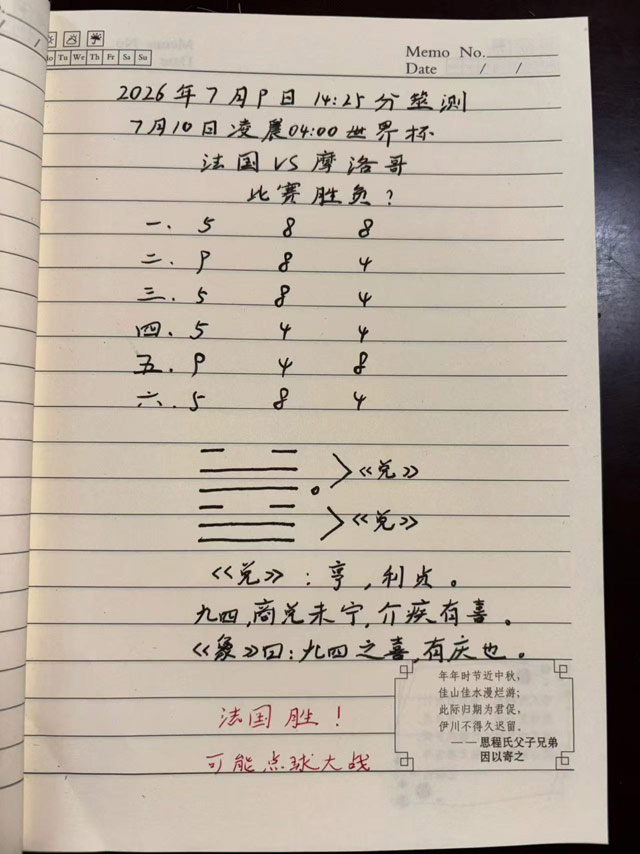 Memo No.
Date / /
Tu We Th Fr Sa Su
2026年7月9日14:25分蓝测
7月10日凌晨04:00世界杯
法国VS摩洛哥
比赛胜负?
一. 5 8 8
二. 9 8 4
三. 5 8 4
四. 5 4 4
五. 9 4 8
六. 5 8 4
《兑》
《兑》
《兑》:亨,利贞。
九四,商兑未宁,介疾有喜。
《象》曰:九四之喜,有庆也。
法国胜!
可能点球大战
年年时节近中秋,
佳山佳水漫烂游;
此际归期为君促,
伊川不得久迟留。
——思程氏父子兄弟
因以寄之